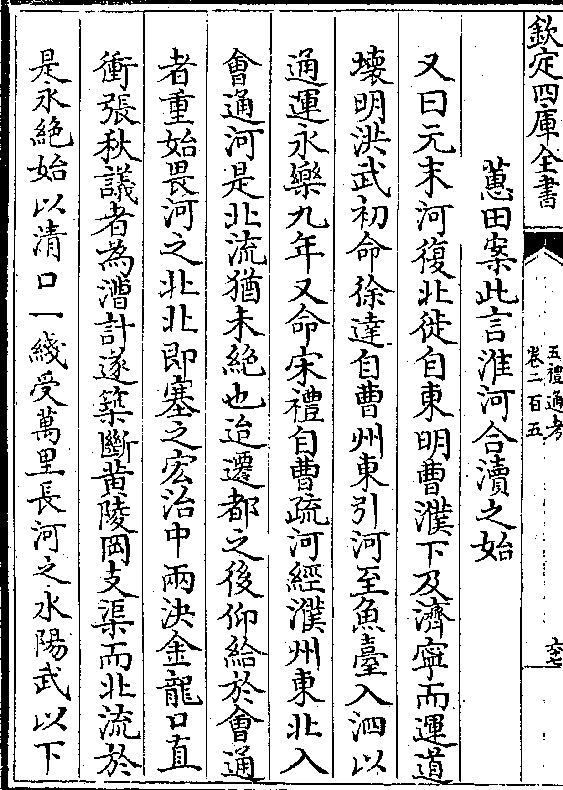 欽定四庫全書
五禮通考
卷二百五
六七
蕙田案此言淮河合瀆之始
又曰元末河復北徙自東明曹濮下及濟寧而運道
壊明洪武初命徐達自曹州東引河至魚臺入泗以
通運永樂九年又命宋禮自曹疏河經濮州東北入
會通河是北流猶未絶也迨遷都之後仰給於會通
者重始畏河之北北即塞之宏治中兩決金龍口直
衝張秋議者為漕計遂築斷黄陵岡支渠而北流於
是永絶始以清口一綫受萬里長河之水陽武以下